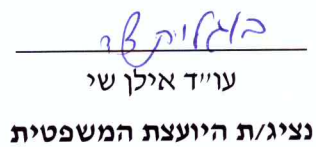 עו״ד אילן שי
נציג/ת היועצת המשפטית